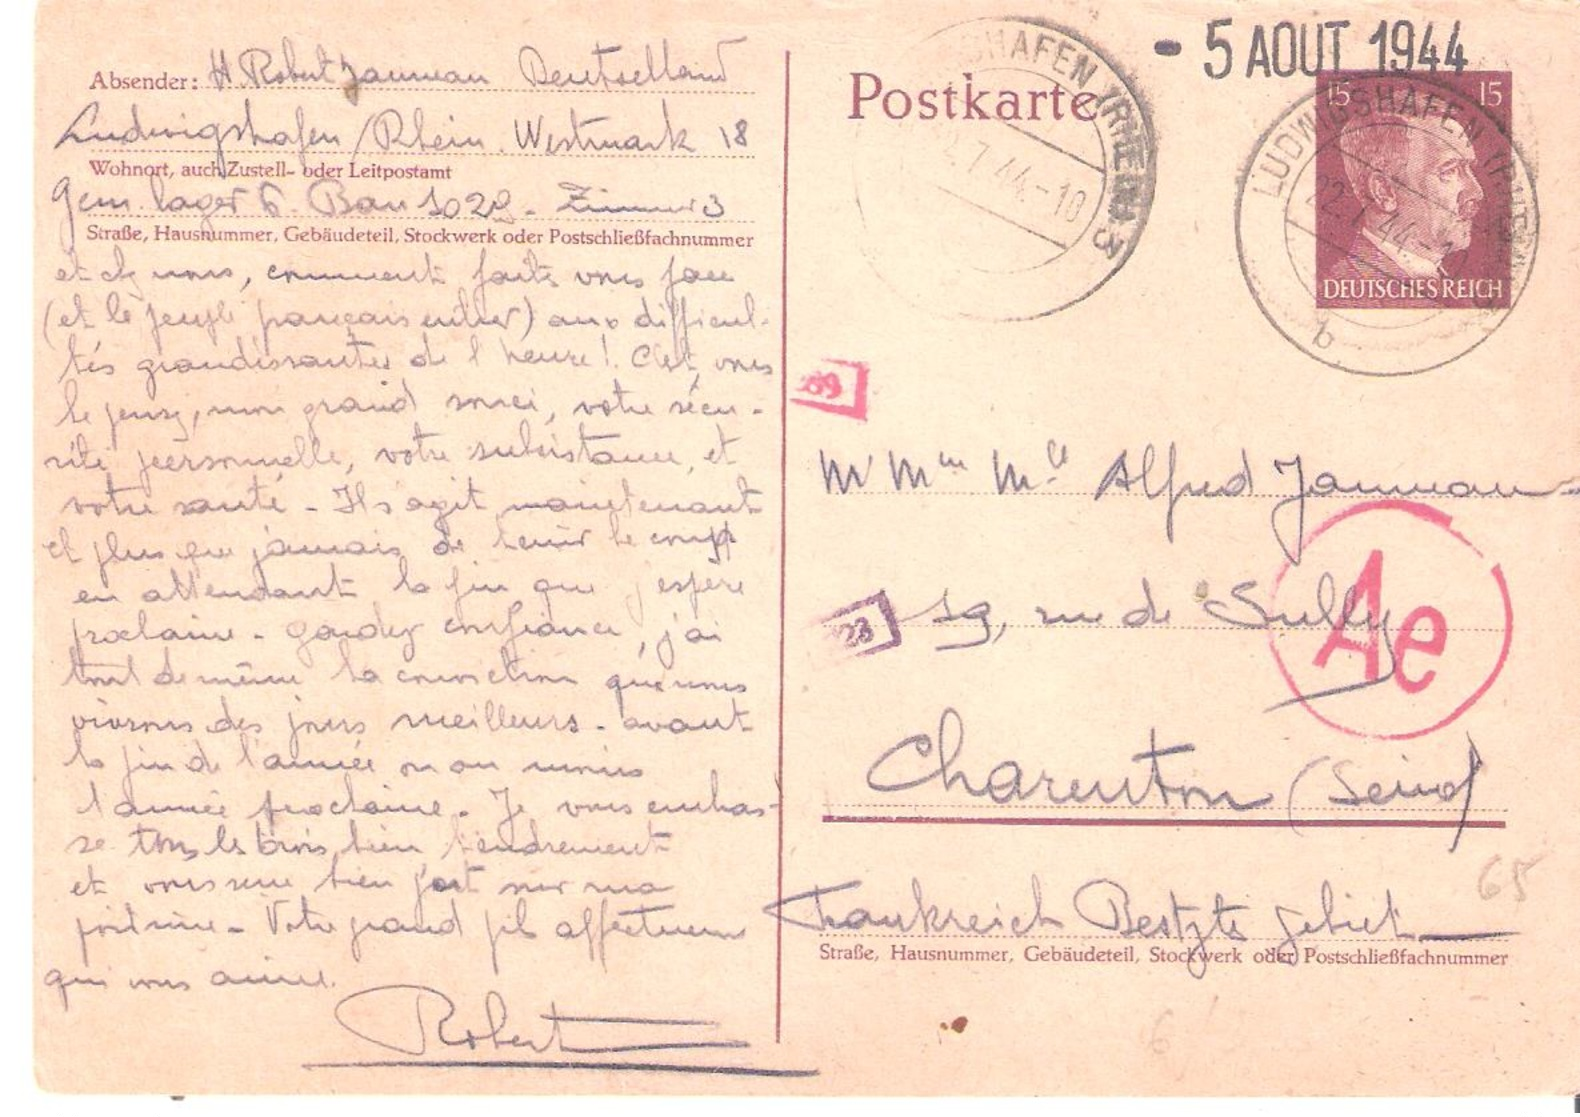 Absender: H Robert Jammeau Deutselland
Ludwigshafen /Rhein. Westmark 18
Wohnort, auch Zustell- oder Leitpostamt
Gem. lager 6 Bau 1029 - Zimmer 3
Straße, Hausnummer, Gebäudeteil, Stockwerk oder Postschließfachnummer
et chez nous, comment faite vous face
(et le peuple français entier) aux difficul-
tés grandissantes de l'heure! C'est, vous
le pensez, mon grand souci, votre sécu-
rité personnelle, votre subsistance, et
votre santé - Il s'agit maintenant
et plus que jamais de tenir le coup
en attendant la fin que j'espère
prochaine - Gardez confiance, j'ai
tout de même la conviction que nous
vivrons des jours meilleurs - avant
la fin de l'année ou au moins
l'année prochaine. Je vous embras-
se tous les trois bien tendrement
et vous serre bien fort sur ma
poitrine - Votre grand fils affectueux
qui vous aime.
Robert
Postkarte
- 5 AOUT 1944
LUDWIGSHAFEN (RHEIN) 3
.7.44.-10
15 15
DEUTSCHES REICH
LUDWIGSHAFEN (RHEIN)
22.7.44.-10
b
69
Mr Mme Mlle Alfred Jammeau
28
19, rue de Sully
Ae
Charenton (Seine)
65
Frankreich Besetzte Gebiet
Straße, Hausnummer, Gebäudeteil, Stockwerk oder Postschließfachnummer
6